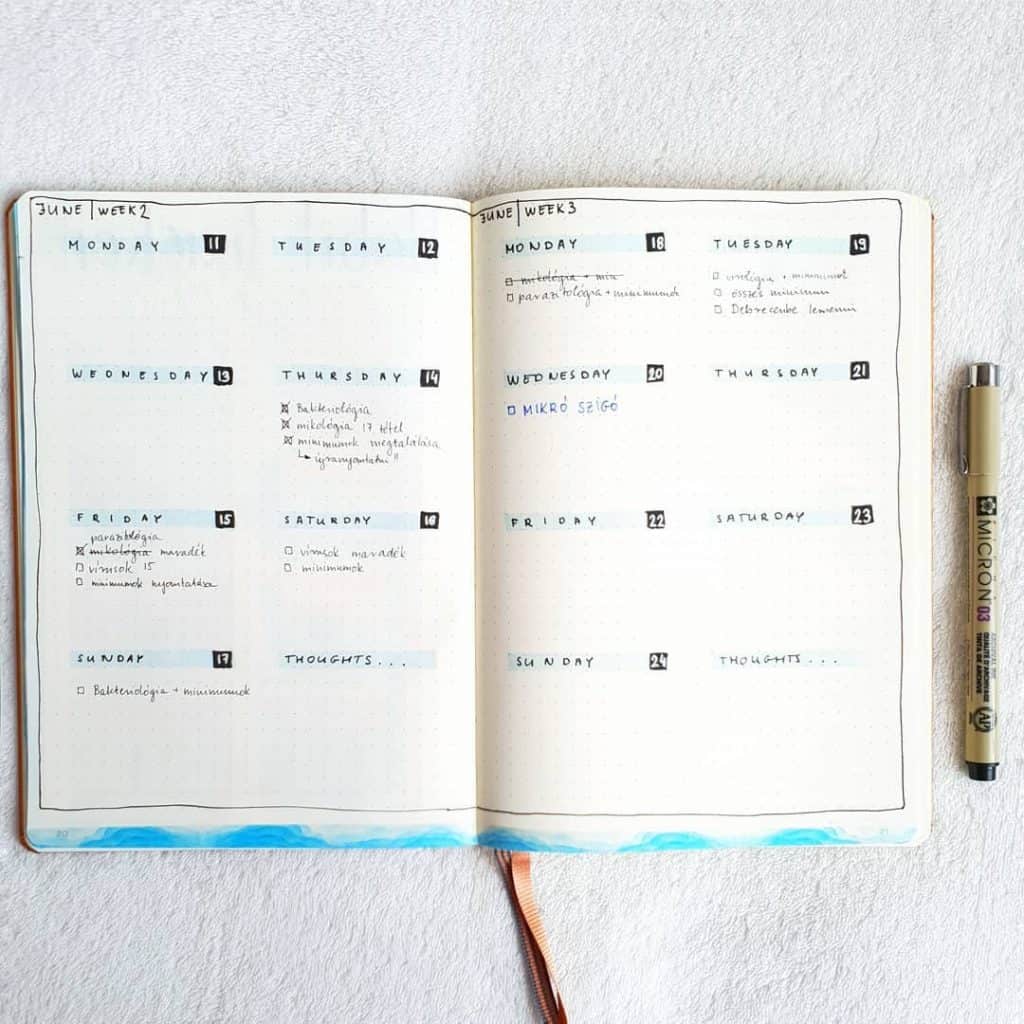 JUNE | WEEK 2
MONDAY 11
TUESDAY 12
WEDNESDAY 13
THURSDAY 14
Bakteriológia
mikológia 17 tétel
minimumok megtalálása
újranyomtatni
FRIDAY 15
parazitológia
mikológia maradék
vírusok 15
minimumok nyomtatása
SATURDAY 16
vírusok maradék
minimumok
SUNDAY 17
Bakteriológia + minimumok
THOUGHTS...
20
JUNE | WEEK 3
MONDAY 18
mikológia + min
parazitológia + minimumok
TUESDAY 19
virológia + minimumok
összes minimum
Debrecenbe lemenni
WEDNESDAY 20
MIKRÓ SZIGÓ
THURSDAY 21
FRIDAY 22
SATURDAY 23
SUNDAY 24
THOUGHTS...
21
MICRON 03
QUALITÉ D'ARCHIVAGE
TINTA DE ARCHIVO
AP